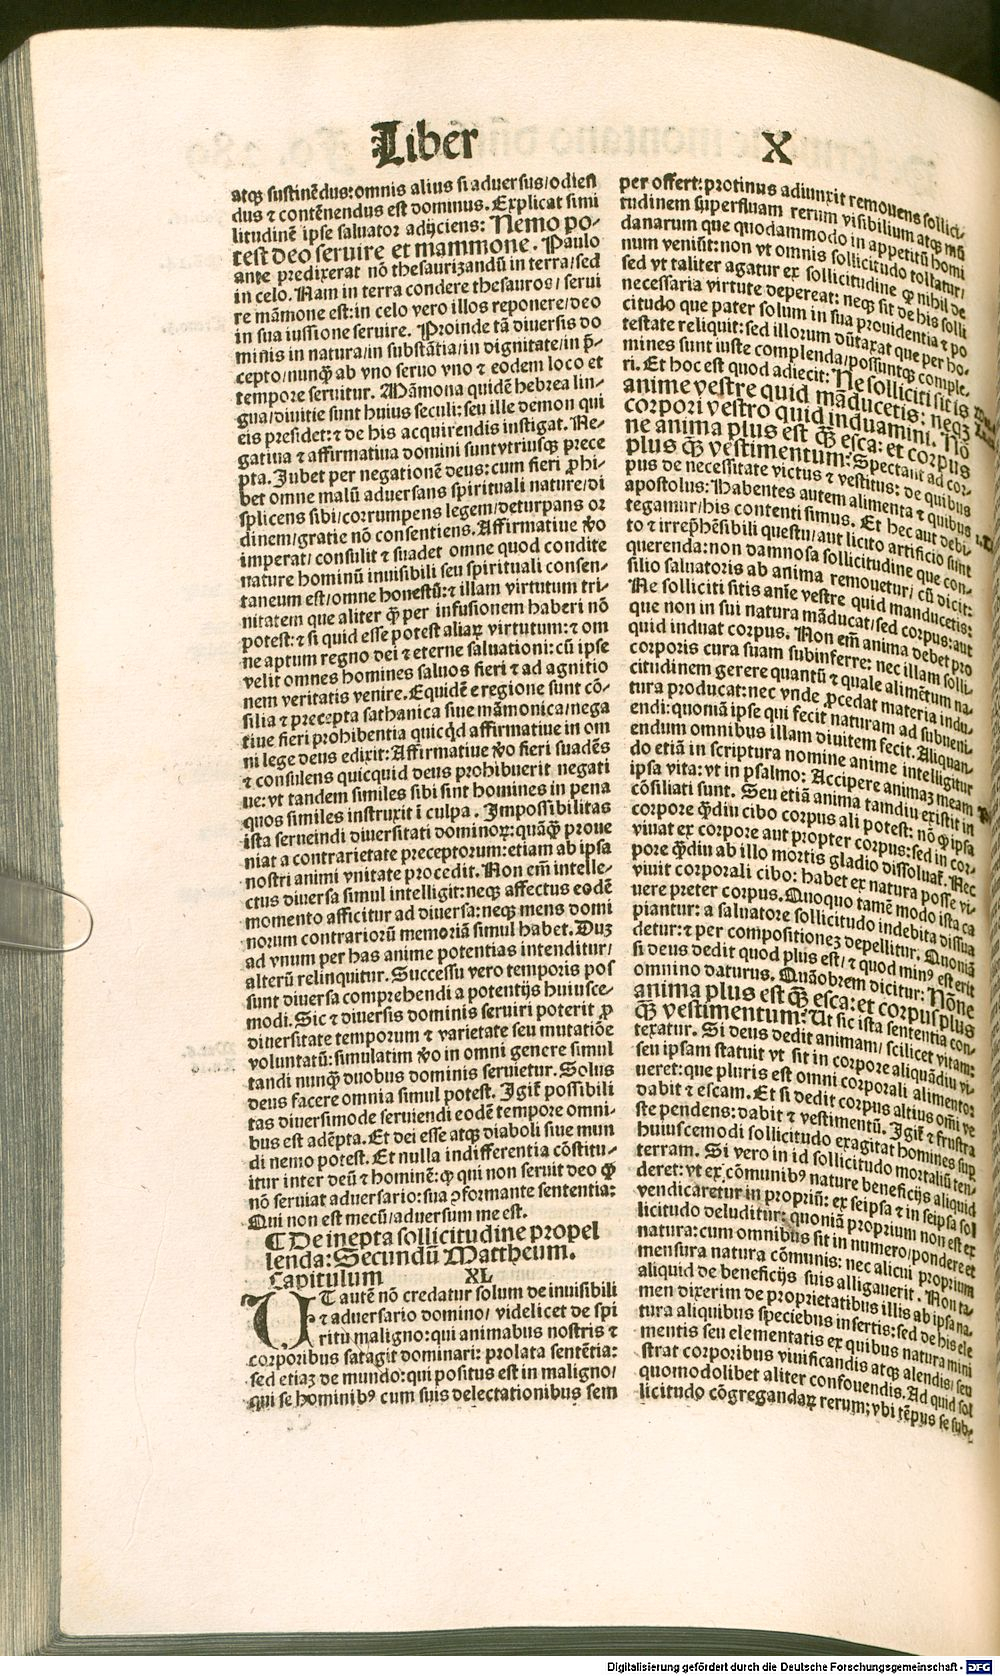 Liber X
atqȝ sustinẽdus: omnis alius si aduersus/odiẽ
dus ⁊ contẽnendus est dominus. Explicat simi
litudinẽ ipse saluator adijciens: Nemo po-
test deo seruire et mammone. Paulo
ante predixerat nõ thesaurizandũ in terra/sed
in celo. Nam in terra condere thesauros/ serui
re mãmone est: in celo vero illos reponere/deo
in sua iussione seruire. Proinde tã diuersis do
minis in natura/in substãtia/in dignitate/in p̃-
cepto/nunq̃ȝ ab vno seruo vno ⁊ eodem loco et
tempore seruitur. Mãmona quidẽ hebrea lin-
gua/diuitie sunt huius seculi: seu ille demon qui
eis presidet: ⁊ de his acquirendis instigat. Ne-
gatiua ⁊ affirmatiua domini sunt vtriusqȝ prece
pta. Jubet per negationẽ deus: cum fieri ꝓhi-
bet omne malũ aduersans spirituali nature/di
splicens sibi/corrumpens legem/deturpans or
dinem/gratie nõ consentiens. Affirmatiue ṽo
imperat/ consulit ⁊ suadet omne quod condite
nature hominũ inuisibili seu spirituali consen-
taneum est/omne honestũ: ⁊ illam virtutum tri-
nitatem que aliter q̃ȝ per infusionem haberi nõ
potest: ⁊ si quid esse potest aliaꝝ virtutum: ⁊ om
ne aptum regno dei ⁊ eterne saluationi: cũ ipse
velit omnes homines saluos fieri ⁊ ad agnitio
nem veritatis venire. Equidẽ e regione sunt cõ-
silia ⁊ precepta sathanica siue mãmonica/nega
tiue fieri prohibentia quicq̇d affirmatiue in om
ni lege deus edixit: Affirmatiue ṽo fieri suadẽs
⁊ consulens quicquid deus prohibuerit negati
ue: vt tandem similes sibi sint homines in pena
quos similes instruxit ĩ culpa. Impossibilitas
ista serueindi diuersitati dominoꝝ: quãq̃ȝ proue
niat a contrarietate preceptorum: etiam ab ipsa
nostri animi vnitate procedit. Non em̃ intelle-
ctus diuersa simul intelligit: neqȝ affectus eodẽ
momento afficitur ad diuersa: neqȝ mens domi
norum contrariorũ memoriã simul habet. Duȝ
ad vnum per has anime potentias intenditur/
alterũ relinquitur. Successu vero temporis pos
sunt diuersa comprehendi a potentijs huiusce-
modi. Sic ⁊ diuersis dominis seruiri poterit ꝓ
diuersitate temporum ⁊ varietate seu mutatiõe
voluntatũ: simulatim ṽo in omni genere simul
tandi nunq̃ȝ duobus dominis seruietur. Solus
deus facere omnia simul potest. Igit̃ possibili
tas diuersimode seruiendi eodẽ tempore omni-
bus est adẽpta. Et dei esse atqȝ diaboli siue mun
di nemo potest. Et nulla indifferentia cõstitu-
itur inter deũ ⁊ hominẽ: ꝙ qui non seruit deo ꝙ
nõ seruiat aduersario: sua ꝯformante sententia:
Qui non est mecũ/aduersum me est.
¶ De inepta sollicitudine propel
lenda: Secundũ Mattheum.
Capitulum XL
UT autẽ nõ credatur solum de inuisibili
⁊ aduersario domino/ videlicet de spi
ritu maligno: qui animabus nostris ⁊
corporibus satagit dominari: prolata sentẽtia:
sed etiaȝ de mundo: qui positus est in maligno/
qui se hominibꝰ cum suis delectationibus sem
per offert: protinus adiunxit remouens sollici-
tudinem superfluam rerum visibilium atqȝ mũ
danarum que quodammodo in appetitũ homi
num veniũt: non vt omnis sollicitudo tollatur/
sed vt taliter agatur ex sollicitudine ꝙ nihil de
necessaria virtute depereat: neqȝ sit de his solli
citudo que pater solum in sua prouidentia ⁊ po
testate reliquit: sed illorum dũtaxat que per ho-
mines sunt iuste complenda/possuntqȝ comple-
ri. Et hoc est quod adiecit: Ne solliciti sitis
anime vestre quid mãducetis: neqȝ
corpori vestro quid induamini. Nõ
ne anima plus est q̃ȝ esca: et corpus
plus q̃ȝ vestimentum: Spectant ad cor-
pus de necessitate victus ⁊ vestitus: de quibus
apostolus: Habentes autem alimenta ⁊ quibus
tegamur/his contenti simus. Et hec aut debi-
to ⁊ irrep̃hẽsibili questu/aut licito artificio sunt
querenda: non damnosa sollicitudine que con-
silio saluatoris ab anima remouetur/ cũ dicit:
Ne solliciti sitis anĩe vestre quid manducetis:
que non in sui natura mãducat/sed corpus: aut
quid induat corpus. Non em̃ anima debet pro
corporis cura suam subinferre: nec illam solli-
citudinem gerere quantũ ⁊ quale alimẽtum na-
tura producat: nec vnde ꝓcedat materia indu-
endi: quoniã ipse qui fecit naturam ad subueni-
endum omnibus illam diuitem fecit. Aliquan-
do etiã in scriptura nomine anime intelligitur
ipsa vita: vt in psalmo: Accipere animaȝ meam
cõsiliati sunt. Seu etiã anima tamdiu existit in
corpore q̃ȝdiu cibo corpus ali potest: nõ ꝙ ipsa
viuat ex corpore aut propter corpus: sed in cor-
pore q̃ȝdiu ab illo mortis gladio dissoluat̃. Nec
viuit corporali cibo: habet ex natura posse vi-
uere preter corpus. Quoquo tamẽ modo ista ca
piantur: a saluatore sollicitudo indebita dissua
detur: ⁊ per compositioneȝ depellitur. Quoniã
si deus dedit quod plus est/ ⁊ quod minꝰ est erit
omnino daturus. Quãobrem dicitur: Nõne
anima plus est q̃ȝ esca: et corpus plus
q̃ȝ vestimentum: Ut sic ista sententia con-
texatur. Si deus dedit animam/ scilicet vitam:
seu ipsam statuit vt sit in corpore aliquãdiu vi-
ueret: que pluris est omni corporali alimento:
dabit ⁊ escam. Et si dedit corpus altius om̃i ve
ste pendens: dabit ⁊ vestimentũ. Igit̃ ⁊ frustra
huiuscemodi sollicitudo exagitat homines sup̃
terram. Si vero in id sollicitudo mortaliũ ten-
deret: vt ex cõmunibꝰ nature beneficijs aliquid
vendicaretur in propriũ: ex seipsa ⁊ in seipsa sol
licitudo deluditur: quoniã proprium non est ex
natura: cum omnibus sit in numero/pondere et
mensura natura cõmunis: nec alicui proprium
aliquid de beneficijs suis alligauerit. Non ta-
men dixerim de proprietatibus illis ab ipsa na-
tura aliquibus speciebus insertis: sed de his ele
mentis seu elementatis ex quibus natura mini
strat corporibus viuificandis atqȝ alendis/ seu
quomodolibet aliter confouendis. Ad quid sol
licitudo cõgregandaꝝ rerum: vbi tẽpus se sub-
Digitalisierung gefördert durch die Deutsche Forschungsgemeinschaft - DFG